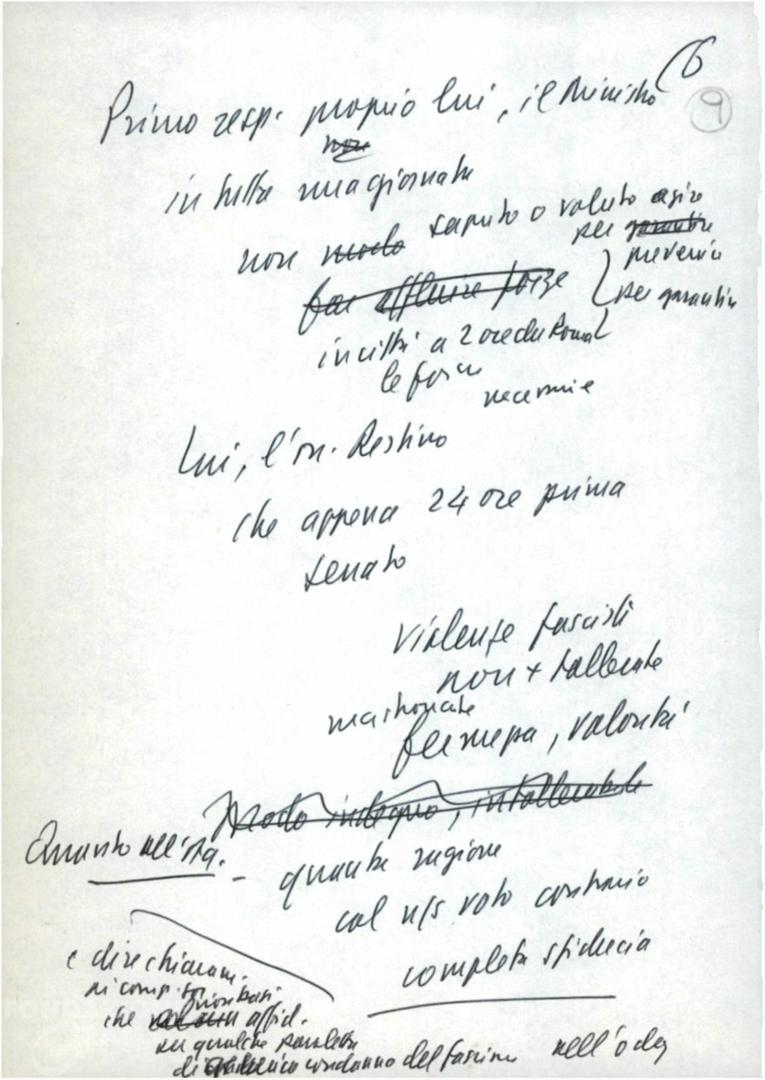 6
9
Primo resp. proprio lui, il Ministro
non
in tutta una giornata
non saputo o voluto agire
per garantire
prevenire
far affluire forze
per garantire
in città a 2 ore da Roma
le forze
necessarie
Lui, l'on. Restivo
che appena 24 ore prima
Senato
violenze fascisti
non + tollerate
mastronate
fermezza, volontà
Modo indegno, intollerabile
Quanto all'
- quanta ragione
col n/s voto contrario
completa sfiducia
e dire chiaram.
che affid.
su qualche paroletta
di condanna del fascismo nell'odg